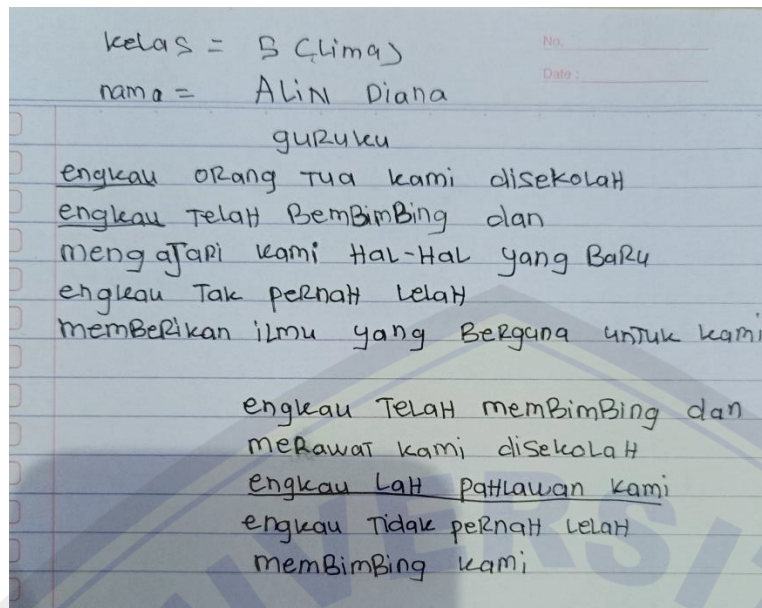 No.
kelas = 5 (Lima)
Date :
nama = ALiN Diana
guRuku
engkau oRang Tua kami disekolaH
engkau TelaH BemBimBing dan
mengajaRi kami HaL-HaL yang BaRu
engkau Tak peRnaH LelaH
memBeRikan iLmu yang BeRguna unTuk kami
engkau TeLaH memBimBing dan
meRawaT kami disekoLaH
engkau LaH paHLawan kami
engkau Tidak peRnaH LelaH
memBimBing kami
UNIVERSIT